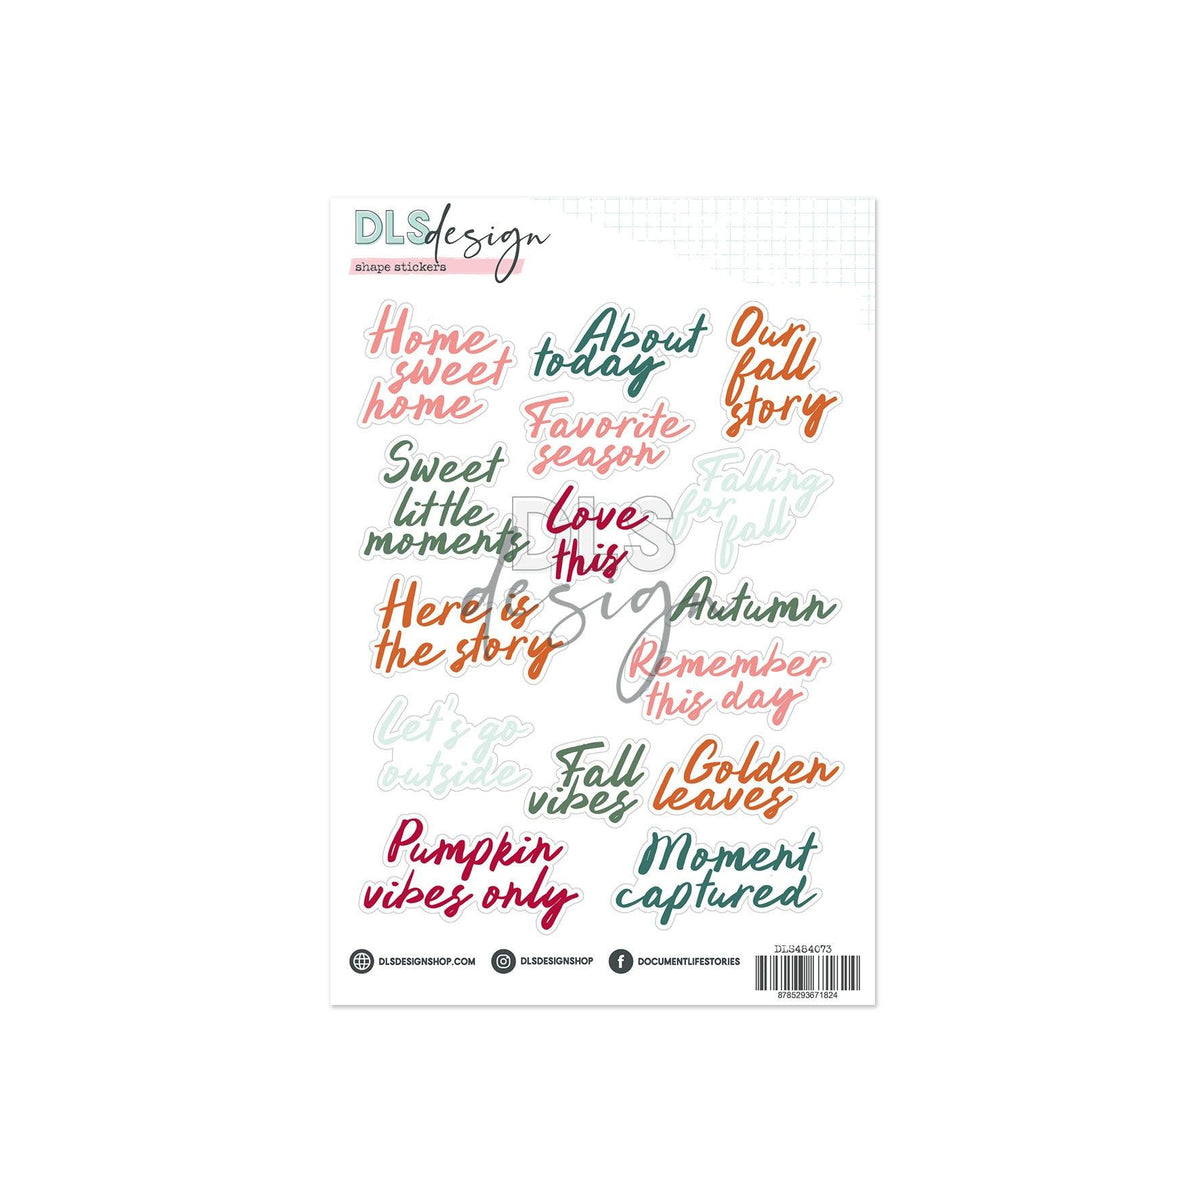 DLS design
shape stickers
Home
sweet
home
About
today
Our
fall
story
Favorite
season
Sweet
little
moments
Falling
for
fall
Love
this
DLS
design
Here is
the story
Autumn
Remember
this day
Let's go
outside
Fall
vibes
Golden
leaves
Pumpkin
vibes only
Moment
captured
DLSDESIGNSHOP.COM
DLSDESIGNSHOP
DOCUMENTLIFESTORIES
DLS484073
8785293671824